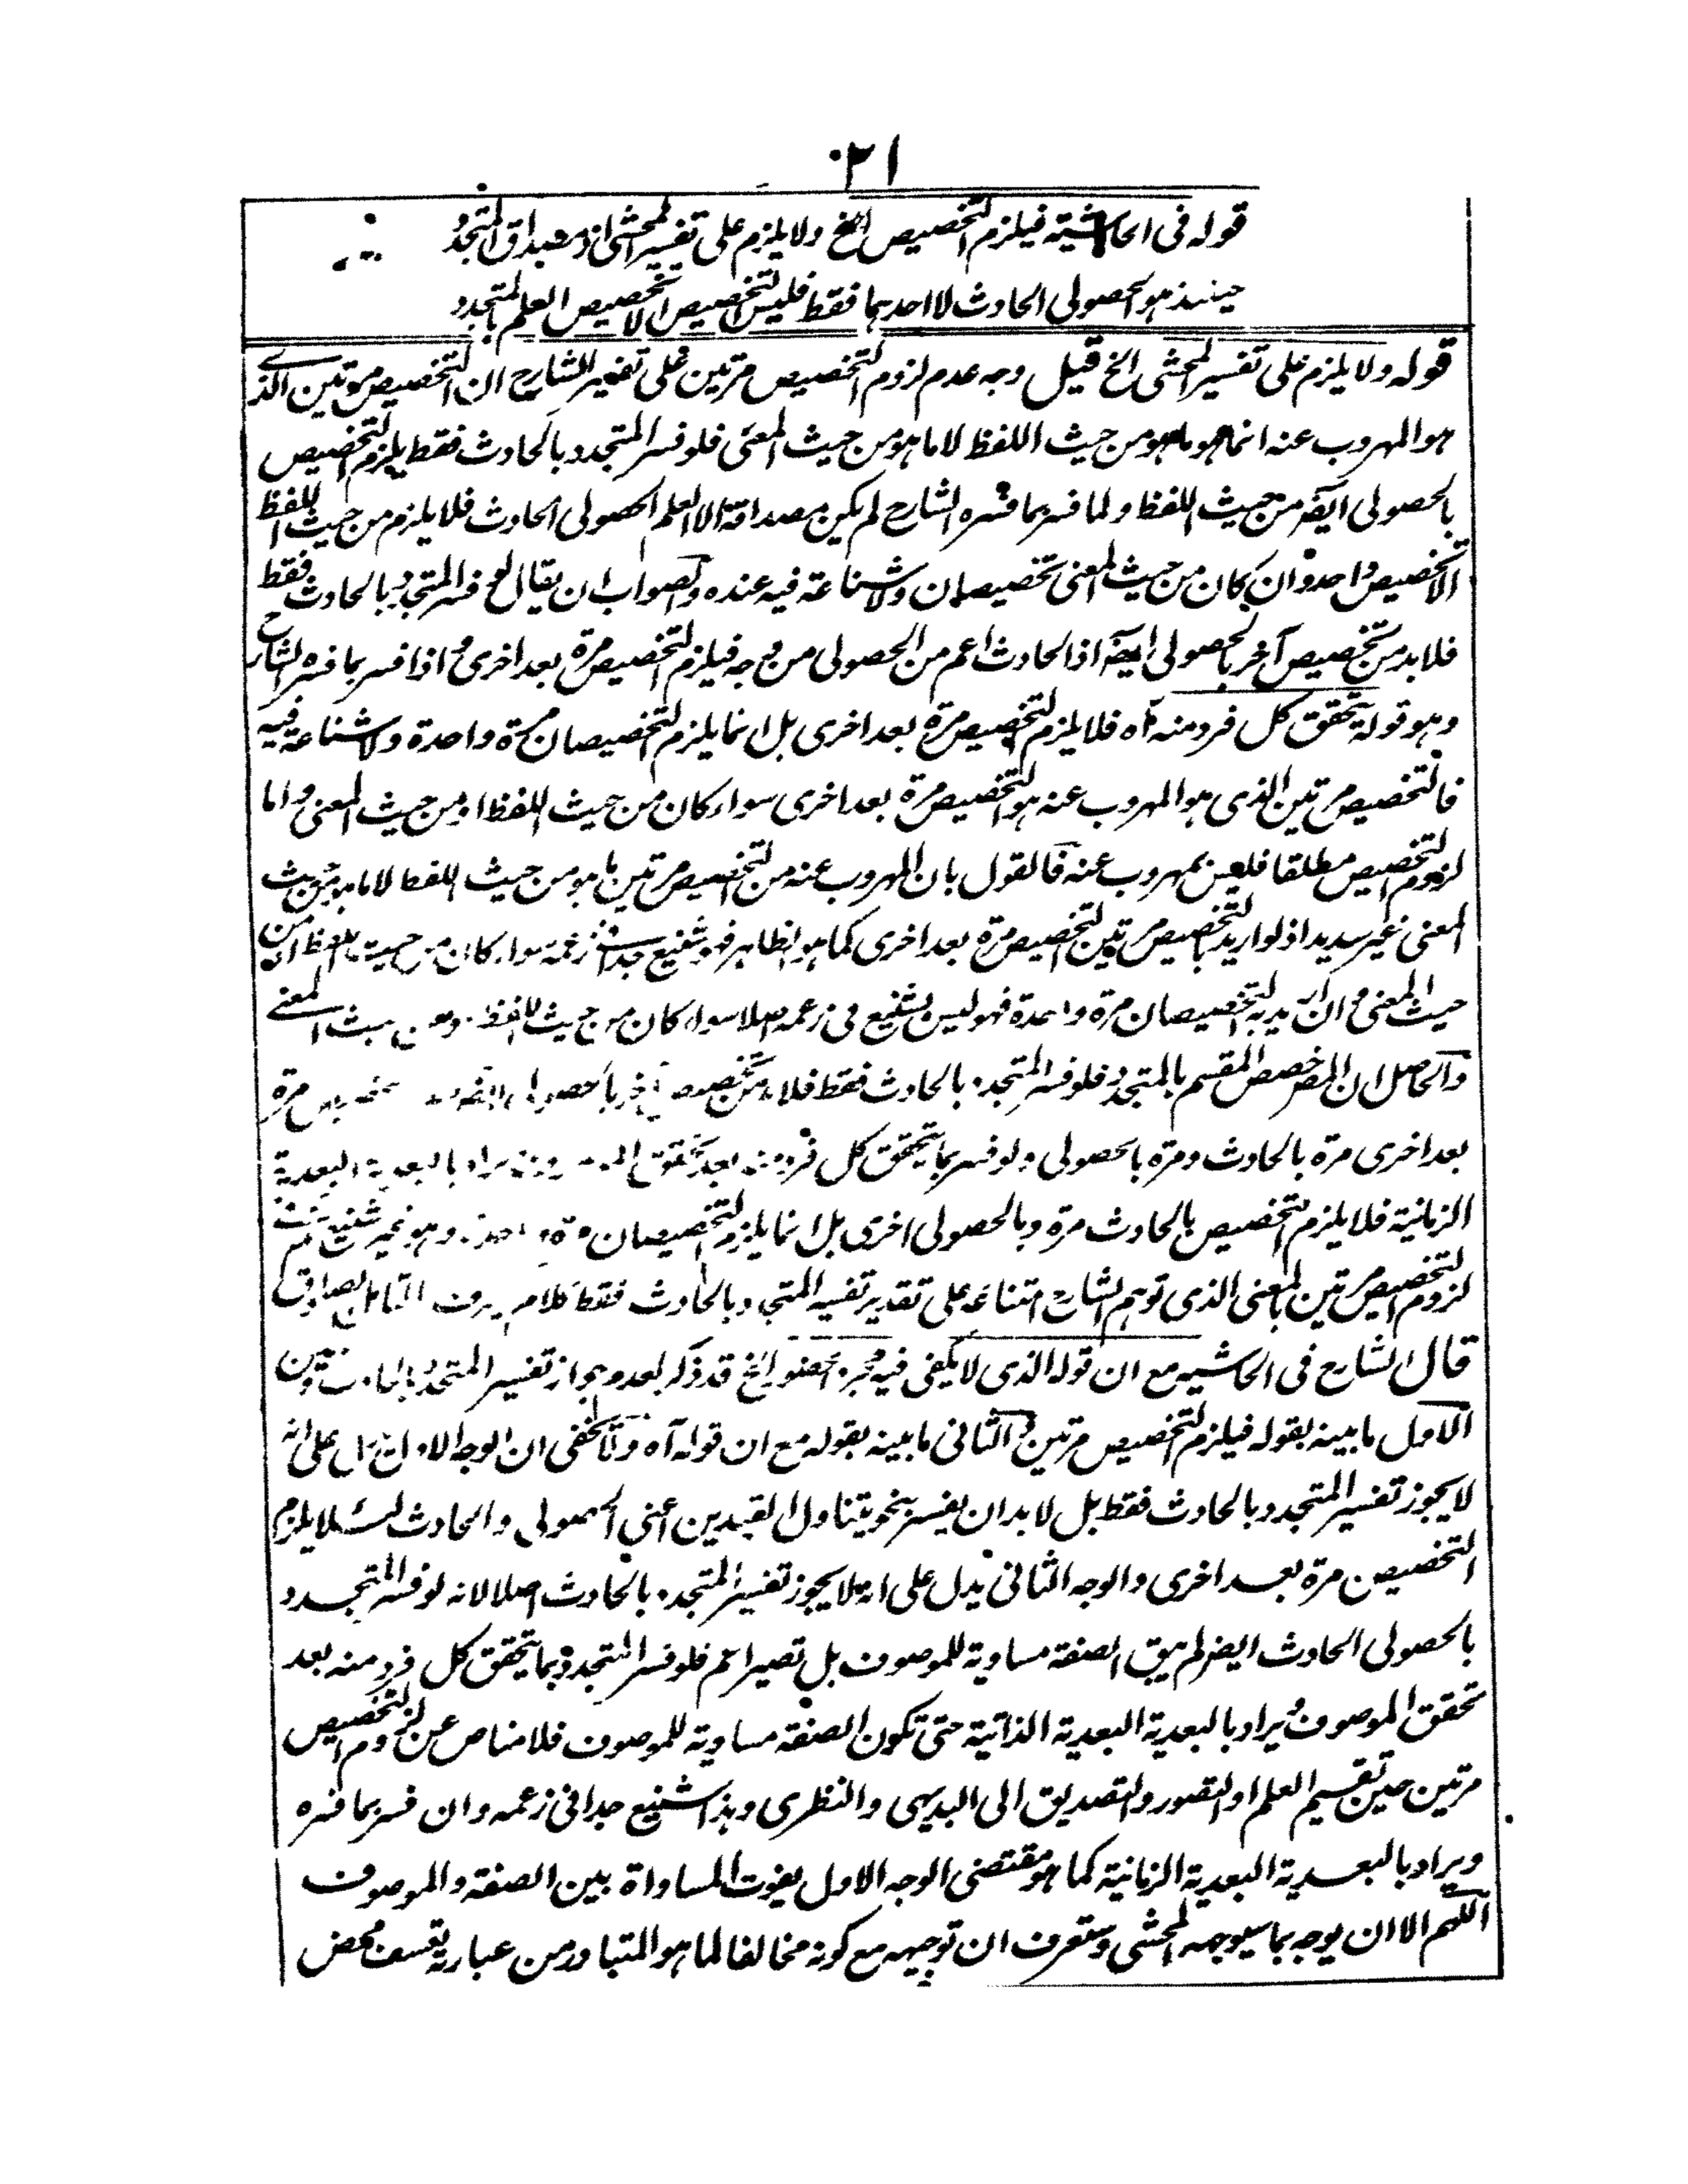 ٢١
قوله فى الحاشية فيلزم التخصيص الخ ولا يلزم على تفسير المحشى اذ مصداق المتجدد
حينئذ هو الحصولى الحادث لا احدهما فقط فليس التخصيص الا تخصيص العلم بالمتجدد
قوله ولا يلزم على تفسير المحشى الخ قيل وجه عدم لزوم التخصيص مرتين على تفسير الشارح ان التخصيص مرتين الذى
هو المهروب عنه انما هو ما هو من حيث اللفظ لا ما هو من حيث المعنى فلو فسر المتجدد بالحادث فقط يلزم التخصيص
بالحصولى ايضا من حيث اللفظ ولما فسر بما فسره الشارح لم يكن مصداقة الا العلم الحصولى الحادث فلا يلزم من حيث اللفظ
الا تخصيص واحد وان كان من حيث المعنى تخصيصان ولا شناعة فيه عنده والصواب ان يقال لو فسر المتجدد بالحادث فقط
فلا بد من تخصيص آخر بالحصولى ايضا اذ الحادث اعم من الحصولى من وجه فيلزم التخصيص مرة بعد اخرى و اذا فسر بما فسره الشارح
وهو قوله يتحقق كل فرد منه آه فلا يلزم التخصيص مرة بعد اخرى بل انما يلزم التخصيصان مرة واحدة ولا شناعة فيه
فالتخصيص مرتين الذى هو المهروب عنه هو التخصيص مرة بعد اخرى سواء كان من حيث اللفظ او من حيث المعنى واما
لزوم التخصيص مطلقا فليس بمهروب عنه فالقول بان المهروب عنه من التخصيص مرتين ما هو من حيث اللفظ لا ما هو من حيث
المعنى غير سديد اذ لو اريد بالتخصيص مرتين التخصيص مرة بعد اخرى كما هو الظاهر فهو شنيع جدا فى زعمه سواء كان من حيث اللفظ او من
حيث المعنى و ان اريد به التخصيصان مرة واحدة فهو ليس بشنيع فى زعمه اصلا سواء كان من حيث اللفظ او من حيث المعنى
والحاصل ان المخصص المقسم بالمتجدد فلو فسر المتجدد بالحادث فقط فلا بد من تخصيص آخر بالحصولى ايضا تخصيص مرة
بعد اخرى مرة بالحادث ومرة بالحصولى ولو فسر بما يتحقق كل فرد منه بعد تحقق الموصوف ويراد بالبعدية البعدية
الزمانية فلا يلزم التخصيص بالحادث مرة وبالحصولى اخرى بل انما يلزم التخصيصان مرة واحدة وهو غير شنيع
لزوم التخصيص مرتين بالمعنى الذى توهم الشارح امتناعه على تقدير تفسير المتجدد بالحادث فقط كلام التامل الصادق
قال الشارح فى الحاشيه مع ان قوله الذى لا يكفى فيه مجرد الحضور الخ قد ذكر لعدم جواز تفسير المتجدد بالحادث وجهين
الاول ما بينه بقوله فيلزم التخصيص مرتين و الثانى ما بينه بقوله مع ان قوله آه ولا يخفى ان الوجه الاول يدل على انه
لا يجوز تفسير المتجدد بالحادث فقط بل لا بد ان يفسر بنحو يتناول القيدين اعنى الحصولى والحادث لئلا يلزم
التخصيص مرة بعد اخرى والوجه الثانى يدل على انه لا يجوز تفسير المتجدد بالحادث اصلا لانه لو فسر المتجدد
بالحصولى الحادث ايضا لم يبق الصفة مساوية للموصوف بل تصير اعم فلو فسر المتجدد بما يتحقق كل فرد منه بعد
تحقق الموصوف ويراد بالبعدية البعدية الذاتية حتى تكون الصفة مساوية للموصوف فلا مناص عن لزوم التخصيص
مرتين حين تقسيم العلم او التصور والتصديق الى البديهى والنظرى وهذا شنيع جدا فى زعمه وان فسر بما فسره
ويراد بالبعدية البعدية الزمانية كما هو مقتضى الوجه الاول يفوت المساواة بين الصفة والموصوف
اللهم الا ان يوجه بما سيوجهه المحشى وستعرف ان توجيهه مع كونه مخالفا لما هو المتبادر من عبارته تعسف محض